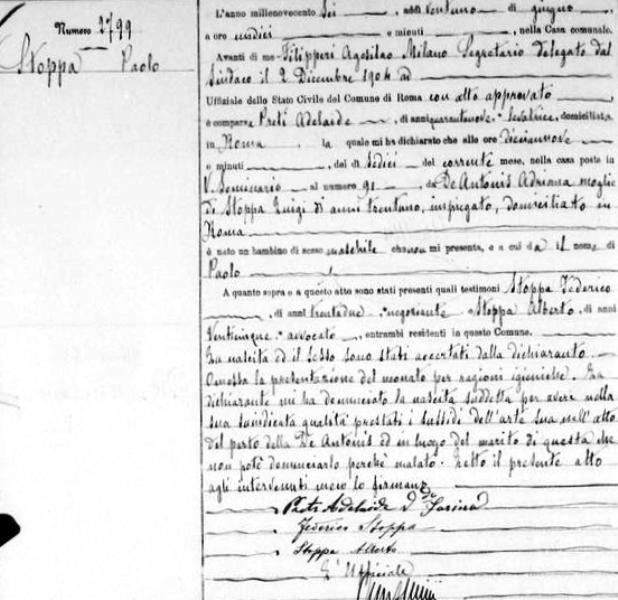 Numero 2799
Stoppa Paolo
L'anno millenovecento sei, addì ventuno di giugno,
a ore undici e minuti, nella Casa comunale.
Avanti di me Filipperi Agesilao Milano Segretario delegato dal
Sindaco il 2 Dicembre 1904 ad
Uffiziale dello Stato Civile del Comune di Roma con atto approvato
è comparsa Preti Adelaide, di anni quarantanove, levatrice, domiciliata
in Roma, la quale mi ha dichiarato che alle ore diciannove
e minuti, del dì sedici del corrente mese, nella casa posta in
V. Seminario al numero 91, da De Antonis Adriana moglie
di Stoppa Luigi di anni trentuno, impiegato, domiciliato in
Roma
è nato un bambino di sesso maschile che non mi presenta, e a cui dà il nome di
Paolo
A quanto sopra e a questo atto sono stati presenti quali testimoni Stoppa Federico
, di anni trentadue, negoziante, Stoppa Alberto, di anni
venticinque, avvocato, entrambi residenti in questo Comune.
La nascita ed il sesso sono stati accertati dalla dichiarante.
Omessa la presentazione del neonato per ragioni igieniche. La
dichiarante mi ha denunciato la nascita suddetta per avere nella
sua suindicata qualità prestati i sussidi dell'arte sua nell'atto
del parto della De Antonis ed in luogo del marito di questa che
non potè denunciarlo perchè malato. Letto il presente atto
agli intervenuti meco lo firmano
Preti Adelaide
Federico Stoppa
Stoppa Alberto
L'Uffiziale